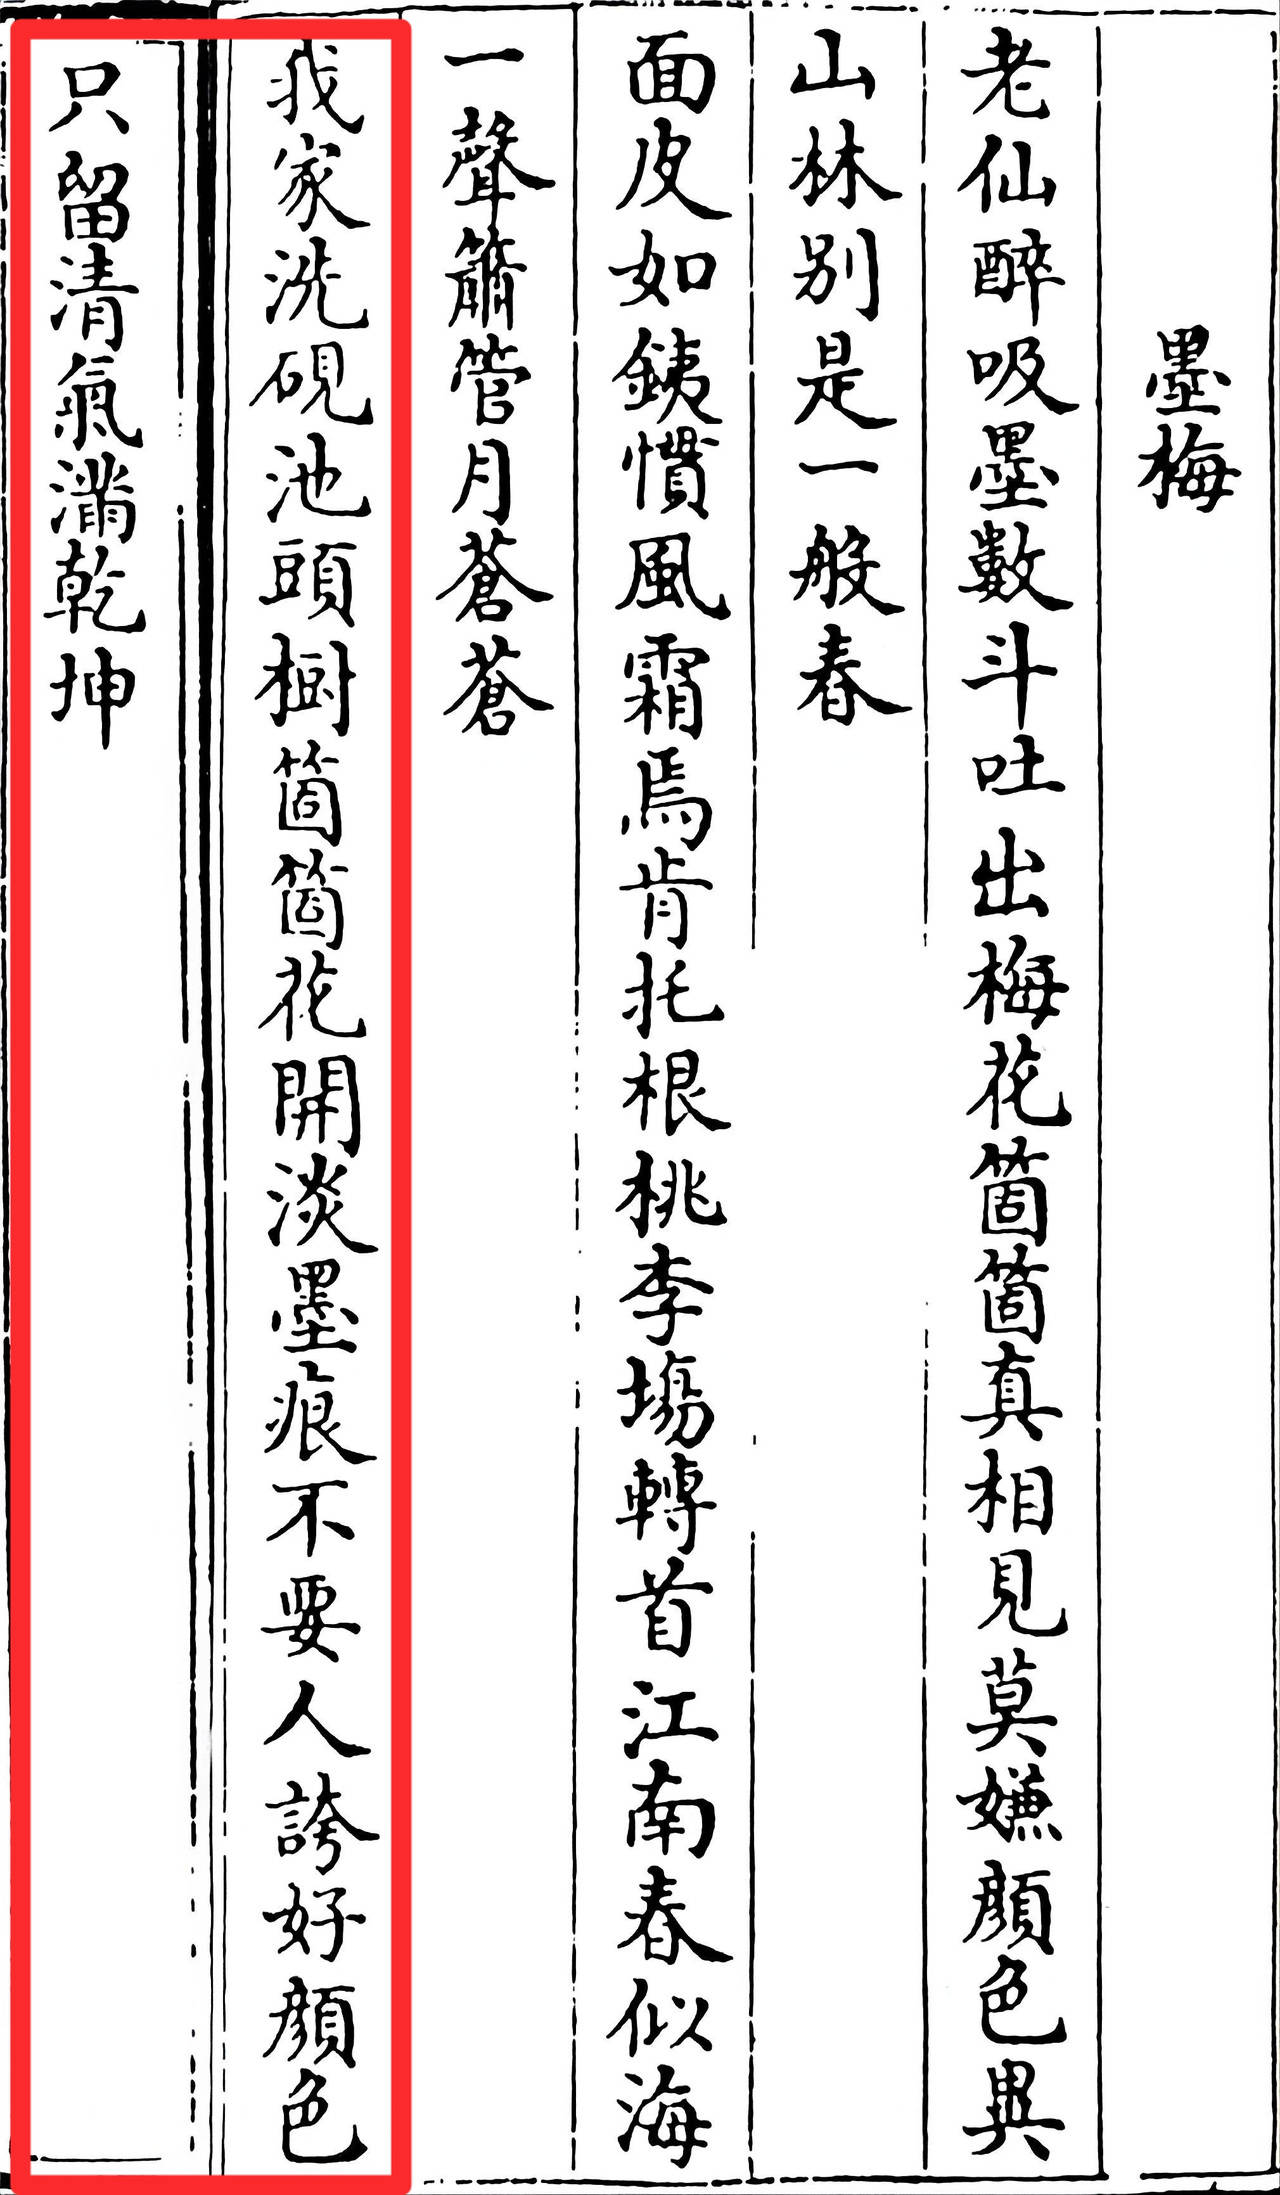 墨梅
老仙醉吸墨數斗吐出梅花箇箇真相見莫嫌顏色異
山林別是一般春
面皮如銕慣風霜焉肯托根桃李塲轉首江南春似海
一聲簫管月蒼蒼
我家洗硯池頭樹箇箇花開淡墨痕不要人誇好顏色
只留清氣滿乾坤